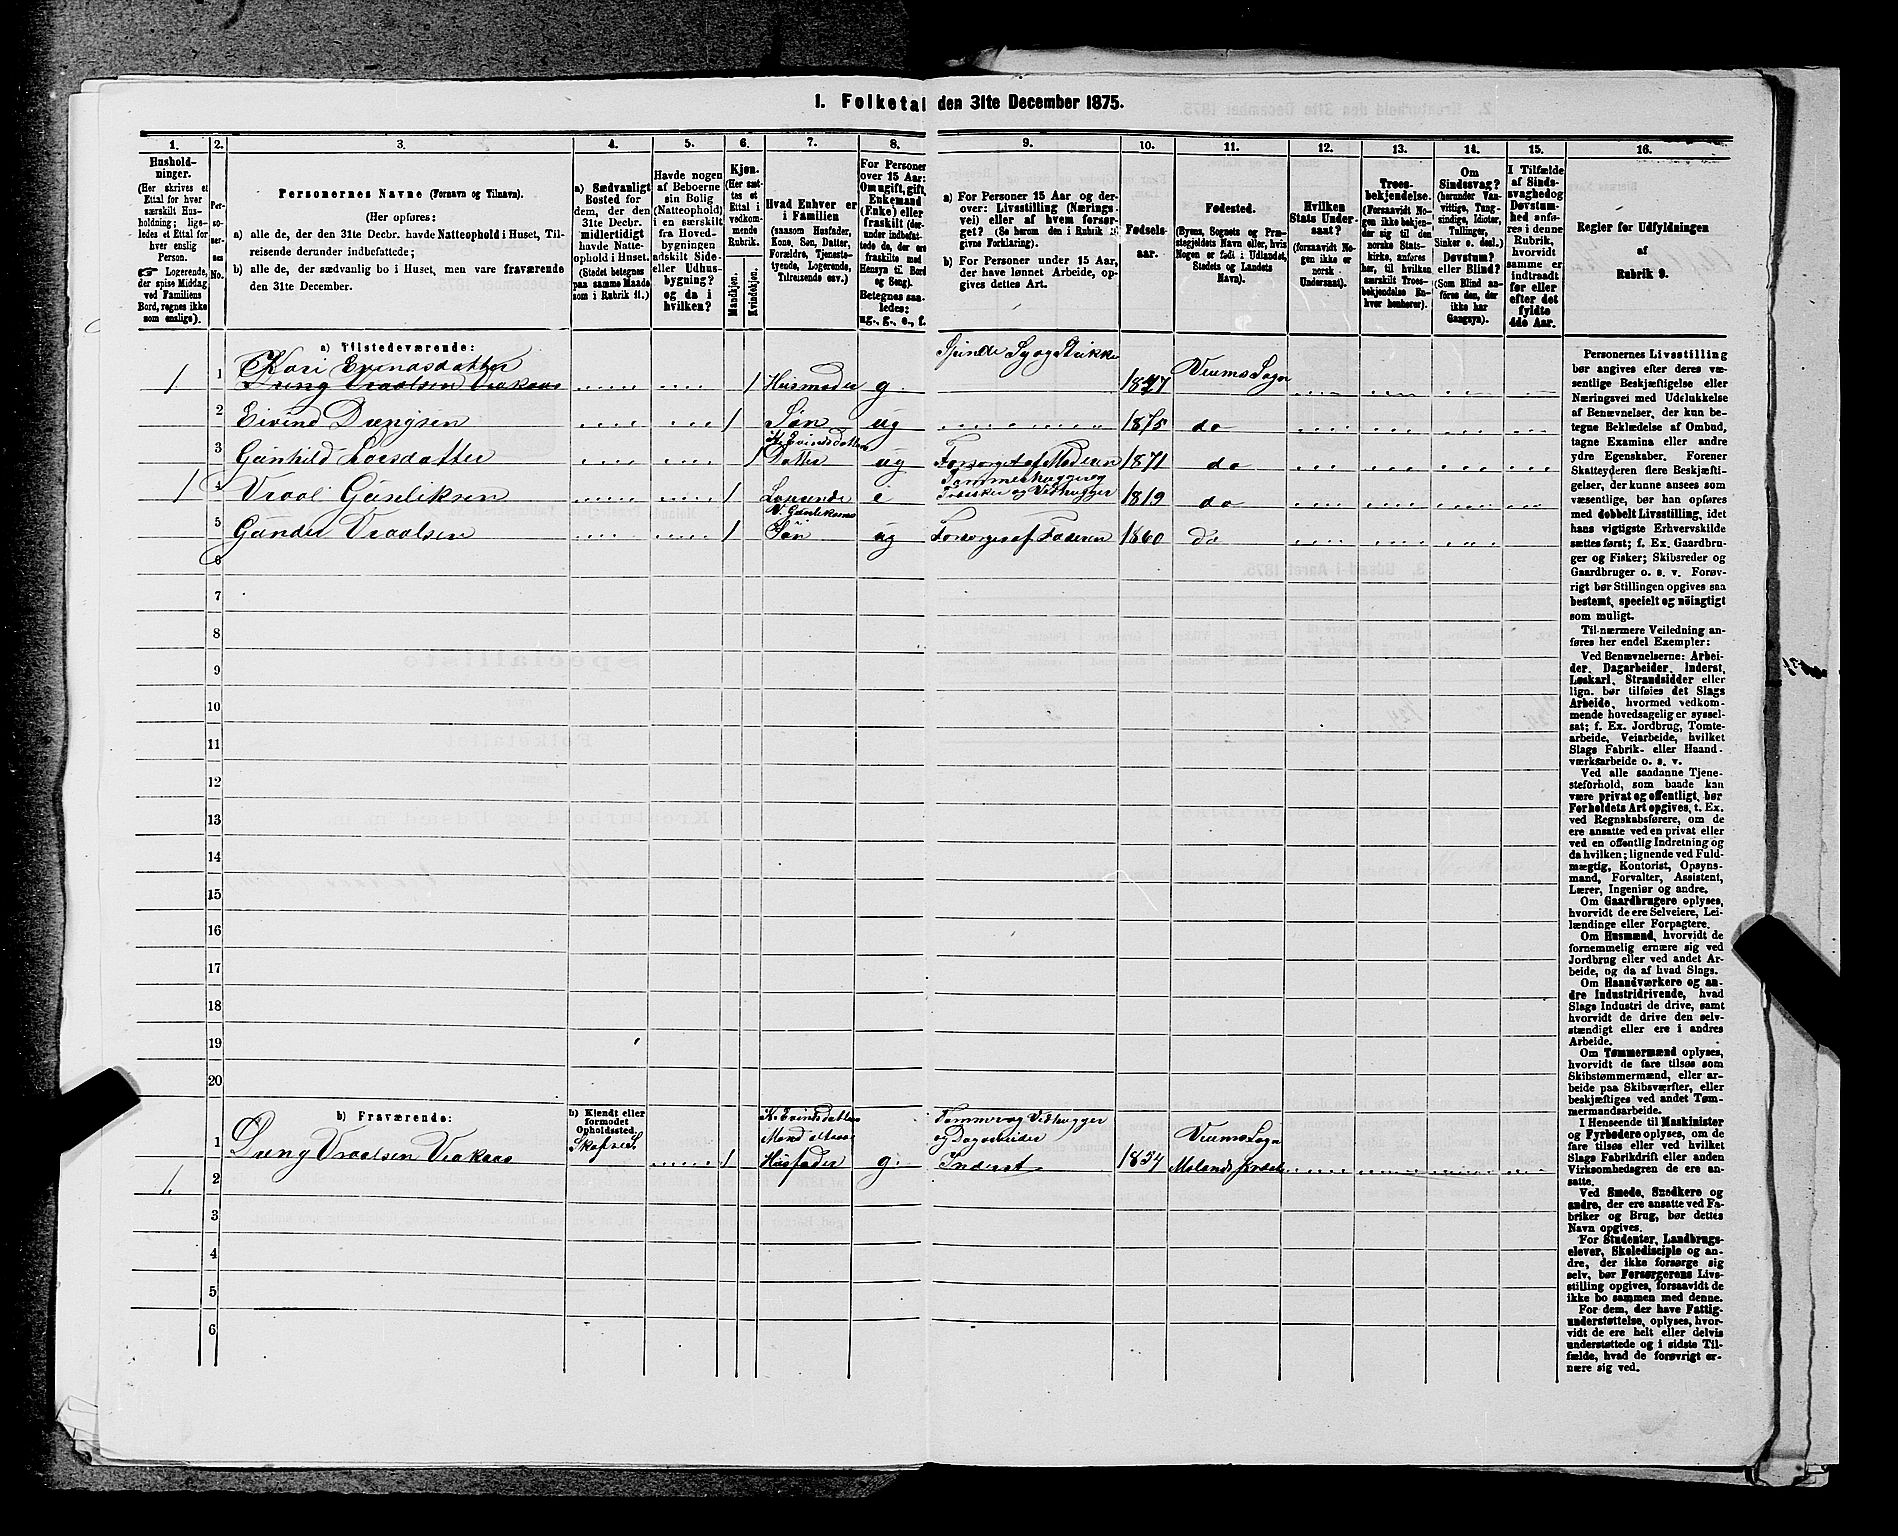 1. Folketal den 31te December 1875.
1.
Hushold-
ninger.
(Her skrives et
Ettal for hver
særskilt Hus-
holdning; lige-
ledes et Ettal for
hver enslig
Person.
☞ Logerende,
der spise Middag
ved Familiens
Bord, regnes ikke
som enslige).
2.
Per-
so-
ner-
nes
No.
3.
Personernes Navne (Fornavn og Tilnavn).
(Her opføres:
a) alle de, der den 31te Decbr. havde Natteophold i Huset, Til-
reisende derunder indbefattede;
b) alle de, der sædvanlig bo i Huset, men vare fraværende
den 31te December.
4.
a) Sædvanligt
Bosted for
dem, der den
31te Decbr.
midlertidigt
havde Natte-
ophold i Huset.
(Stedet betegnes
paa samme Maade
som i Rubrik 11.)
5.
Havde nogen
af Beboerne
sin Bolig
(Natteophold)
i en særskilt
fra Hoved-
bygningen
adskilt Side-
eller Udhus-
bygning?
og da i
hvilken?
6.
Kjøn.
(Her sæt-
tes et
Ettal i
vedkom-
mende
Rubrik.
Mandkjøn.
Kvindekjøn.
7.
Hvad Enhver er
i Familien
(saasom Husfader,
Kone, Søn, Datter,
Forældre, Tjeneste-
tyende, Logerende,
Tilreisende osv.)
8.
For Personer
over 15 Aar:
Om ugift, gift,
Enkemand
(Enke) eller
fraskilt (der-
under indbefat-
tede de, der ere
fraskilte med
Hensyn til Bord
og Seng).
Betegnes saa-
ledes:
ug., g., e., f.
9.
a) For Personer 15 Aar og der-
over: Livsstilling (Nærings-
vei) eller af hvem forsør-
get? (Se herom den i Rubrik 16
givne Forklaring).
b) For Personer under 15 Aar,
der have lønnet Arbeide, op-
gives dettes Art.
10.
Fødsels-
aar.
11.
Fødested.
(Byens, Sognets og Præ-
stegjeldets Navn eller, hvis
Nogen er født i Udlandet,
Stedets og Landets
Navn).
12.
Hvilken
Stats Under-
saat?
(forsaavidt No-
gen ikke er
norsk
Undersaat).
13.
Troes-
bekjendelse.
(Forsaavidt No-
gen ikke bekjen-
der sig til den
norske Stats-
kirke, anføres
her, til hvilken
særskilt Troes-
bekjendelse En-
hver henhører).
14.
Om
Sindssvag?
(herunder Van-
vittige, Tung-
sindige, Idioter,
Tullinger,
Sinker o. desl.)
Døvstum?
eller Blind?
(Som Blind an-
føres den, der
ikke har
Gangsyn).
15.
I Tilfælde
af Sinds-
svaghed og
Døvstum-
hed anfø-
res i denne
Rubrik,
hvorvidt
samme er
indtraadt
før eller
efter det
fyldte
4de Aar.
16.
Regler for Udfyldningen
af
Rubrik 9.
a) Tilstedeværende:
1 1 Kari Evindsdatter
Dreng Vraalsen Veakaas 1 Husmoder g. Spinde Sy og Strikke 1847 Veums Sogn
2 Eivind Drengsen 1 Søn ug 1875 do
3 Gunhild Larsdatter 1 K. Evindsdatters Datter ug Forsørget af Moderen 1871 do
1 4 Vraal Gunleiksen 1 Losierende e Tømmerhugger og Fisker og Vedhugger 1819 do
5 Gunder Vraalsen 1 V. Gunleiksens Søn ug Forsørges af Faderen 1860 do
6
7
8
9
10
11
12
13
14
15
16
17
18
19
20
b) Fraværende:
b) Kjendt eller
formodet
Opholdssted.
1 Dreng Vraalsen Veakaas 1 K. Evindsdatters Mand altsaa Husfader g. Tømmer og Vedhugger og Dagarbeider Inderst 1854 Veums Sogn Molands Præst
1. 2
3
4
5
6
Personernes Livsstilling
bør angives efter deres væ-
sentlige Beskjæftigelse eller
Næringsvei med Udelukkelse
af Benævnelser, der kun be-
tegne Beklædelse af Ombud,
tagne Examina eller andre
ydre Egenskaber. Forener
Skatteyderen flere Beskjæfti-
gelser, der kunne ansees som
væsentlige, bør han opføres
med dobbelt Livsstilling, idet
hans vigtigste Erhvervskilde
sættes først; f. Ex. Gaardbru-
ger og Fisker; Skibsreder og
Gaardbruger o. s. v. Forøv-
rigt bør Stillingen opgives saa
bestemt, specielt og nöiagtigt
som muligt.
Til nærmere Veiledning an-
føres her endel Exempler:
Ved Benævnelserne: Arbei-
der, Dagarbeider, Inderst,
Løskarl, Strandsidder eller
lign. bør tilføies det Slags
Arbeide, hvormed vedkom-
mende hovedsagelig er syssel-
sat; f. Ex. Jordbrug, Tomte-
arbeide, Veiarbeide, hvilket
Slags Fabrik- eller Haand-
værksarbeide o. s. v.
Ved alle saadanne Tjene-
steforhold, som baade kan
være privat og offentligt, bør
Forholdets Art opgives, t. Ex.
ved Regnskabsførere, om de
ere ansatte ved en privat eller
ved en offentlig Indretning og
da hvilken; lignende ved Fuld-
mægtig, Kontorist, Opsyns-
mand, Forvalter, Assistent,
Lærer, Ingeniør og andre.
Om Gaardbrugere oplyses,
hvorvidt de ere Selveiere, Lei-
lændinge eller Forpagtere.
Om Husmænd, hvorvidt de
fornemmelig ernære sig ved
Jordbrug eller ved andet Ar-
beide, og da af hvad Slags.
Om Haandværkere og an-
dre Industridrivende, hvad
Slags Industri de drive, samt
hvorvidt de drive den selv-
stændigt eller ere i andres
Arbeide.
Om Tømmermænd oplyses,
hvorvidt de fare tilsøs som
Skibstømmermænd, eller ar-
beide paa Skibsværfter, eller
beskjæftiges ved andet Tøm-
mermandsarbeide.
I Henseende til Maskinister
og Fyrbødere oplyses, om de
fare tilsøs eller ved hvilket
Slags Fabrikdrift eller anden
Virksomhedsgren de ere an-
satte.
Ved Smede, Snedkere og
andre, der ere ansatte ved Fa-
briker og Brug, bør dettes
Navn opgives.
For Studenter, Landbrugs-
elever, Skoledisciple og an-
dre, der ikke forsørge sig
selv, bør Forsørgerens Livs-
stilling opgives, forsaavidt de
ikke bo sammen med denne.
For dem, der have Fattig-
understøttelse, oplyses, hvor-
vidt de ere helt eller delvis
understøttede og i sidste Til-
fælde, hvad de forøvrigt er-
nære sig ved.